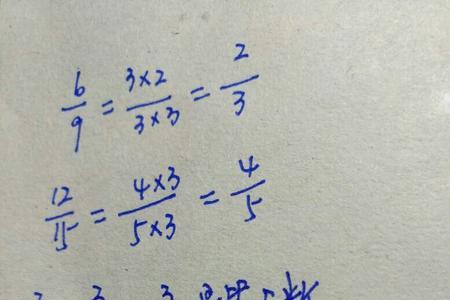 6/9 = 3×2/3×3 = 2/3
12/15 = 4×3/5×3 = 4/5